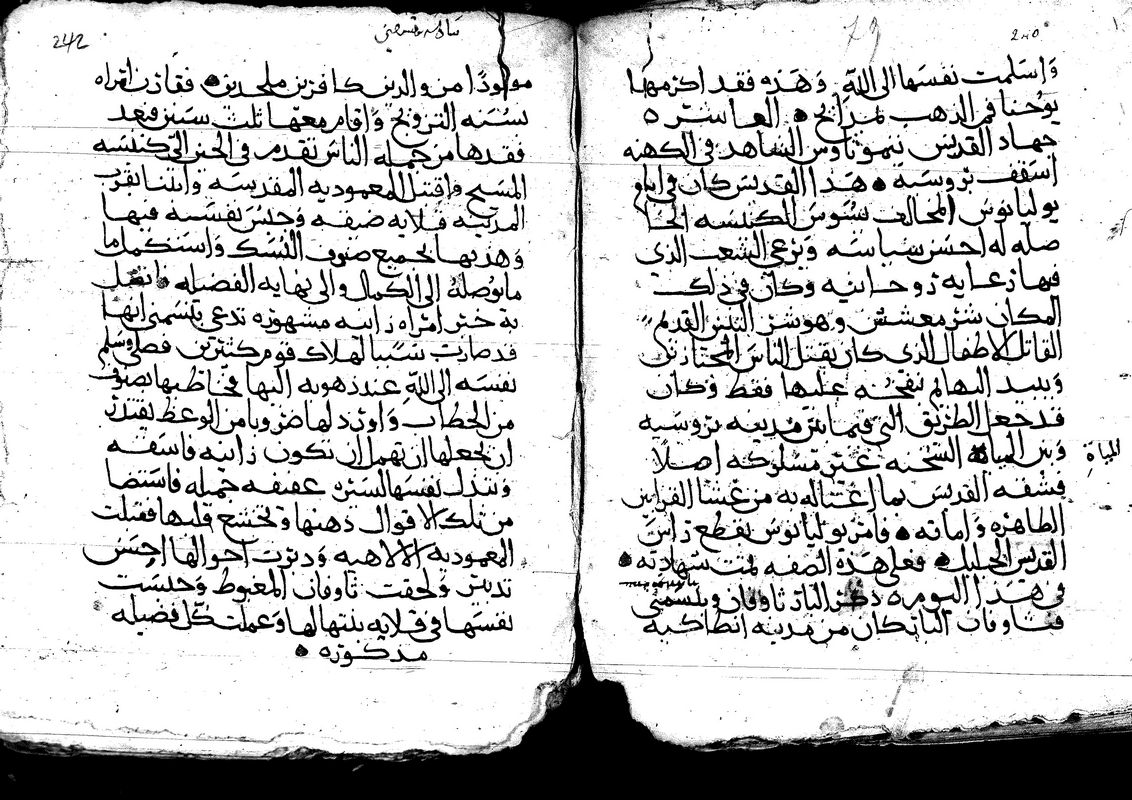 240
79
واسلمت نفسها الى الله وهذه فقد اكرمها
يوحنا فمي الذهب بمدايح العاشر ٥
جهاد القديس تيموثاوس الشاهد في الكهنه
اسقف بروسيه هذا القديس كان في ايام
يوليانوس المخالف يسوس الكنيسه الحا
صله له احسن سياسه ويرعى الشعب الذي
فيها رعايه روحانيه وكان في ذلك
المكان معشش وهو التنين القديم
القاتل الاطفال الذي كان يقتل الناس المجتازين
ويبيد البهايم بنفخه عليها فقط وكان
قد جعل الطريق التي فيما بين مدينه بروسيه
وبين المياه السخنه غير مسلوكه اصلاً
المياة
فشقه القديس بما اغتاله به من غشا القرابين
الطاهره واماته فامر يوليانوس بقطع راس
القديس الجليل فعلى هذه الصفه تمت شهادته
في هذا اليوم ٥ ذكر البار ثاوفان ويتسمى
فثاوفان البار كان من مدينه انطاكيه
242
مولودًا من والدين كافرين ملحدين فقارن امراه
بسنه التزويج واقام معها ثلث سنين فبعد
فقدها من جمله الناس تقدم في الحين الى كنيسه
المسيح واقتبل المعموديه المقدسه وابتنا بقرب
المدينه قلايه ضيقه وحبس نفسه فيها
وهذبها بجميع صنوف النسك واستكمل ما
ما يوصله الى الكمال والى نهايه الفضيله اتصل
به خبر امراه زانيه مشهوره تدعى انها
قد صارت سببا لهلاك قوم كثيرين فصلى وسلم
نفسه الى الله عند ذهوبه اليها فخاطبها بصنوف
من الخطاب واورد لها ضروبا من الوعظ يقتدر
ان يجعلها ان تهمل ان تكون زانيه فاسقه
وتبذل نفسها لسيره عفيفه جميله فاستضا
من تلك الاقوال ذهنها وتخشع قلبها فقبلت
المعموديه الالاهيه ودبرت احوالها احسن
تدبير ولحقت ثاوفان المغبوط وحبست
نفسها في قلايه بنتها لها وعملت كل فضيله
مذكوره